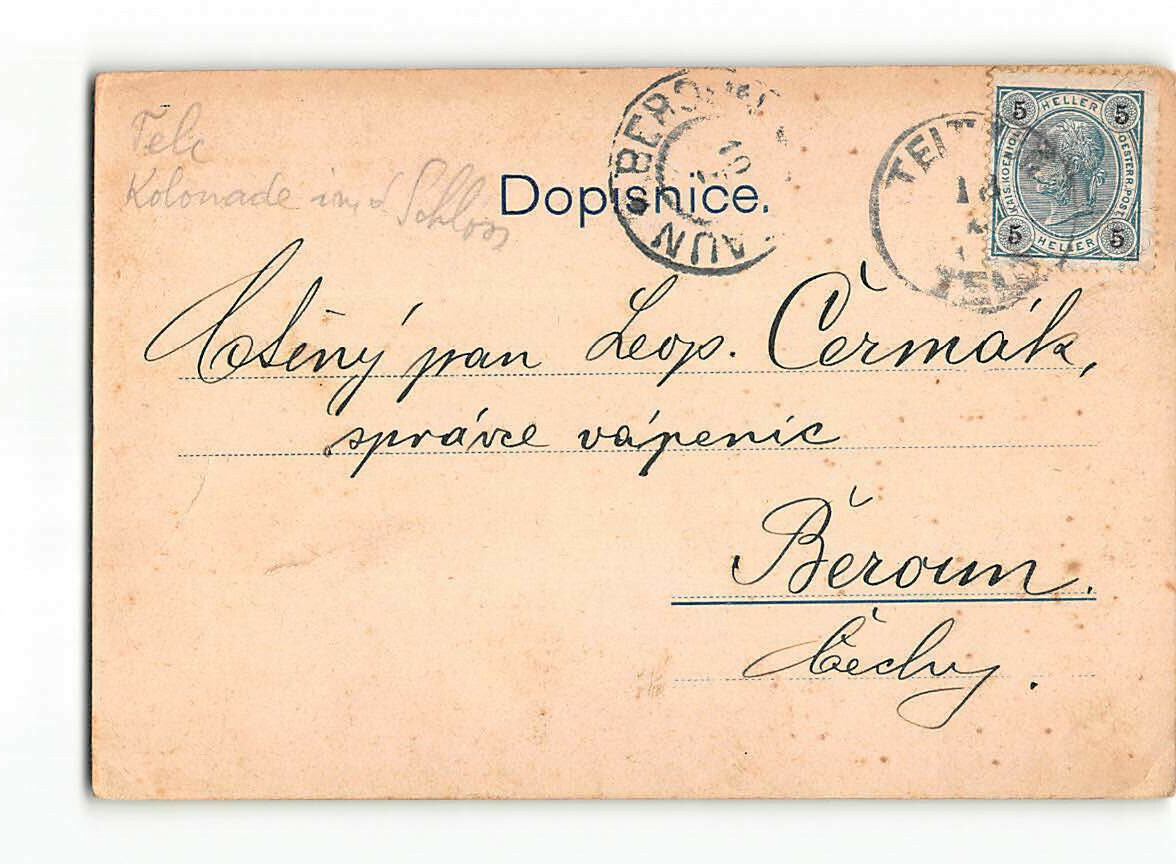 Telc
Kolonade im Schloss
Dopisnice.
BEROUN
BERAUN
TELTSCH
18
TELČ
5 HELLER 5
KAIS. KOENIGL. OESTERR. POST
5 HELLER 5
Ctěný pan Leop. Čermák,
správce vápenic
Beroun.
Čechy.